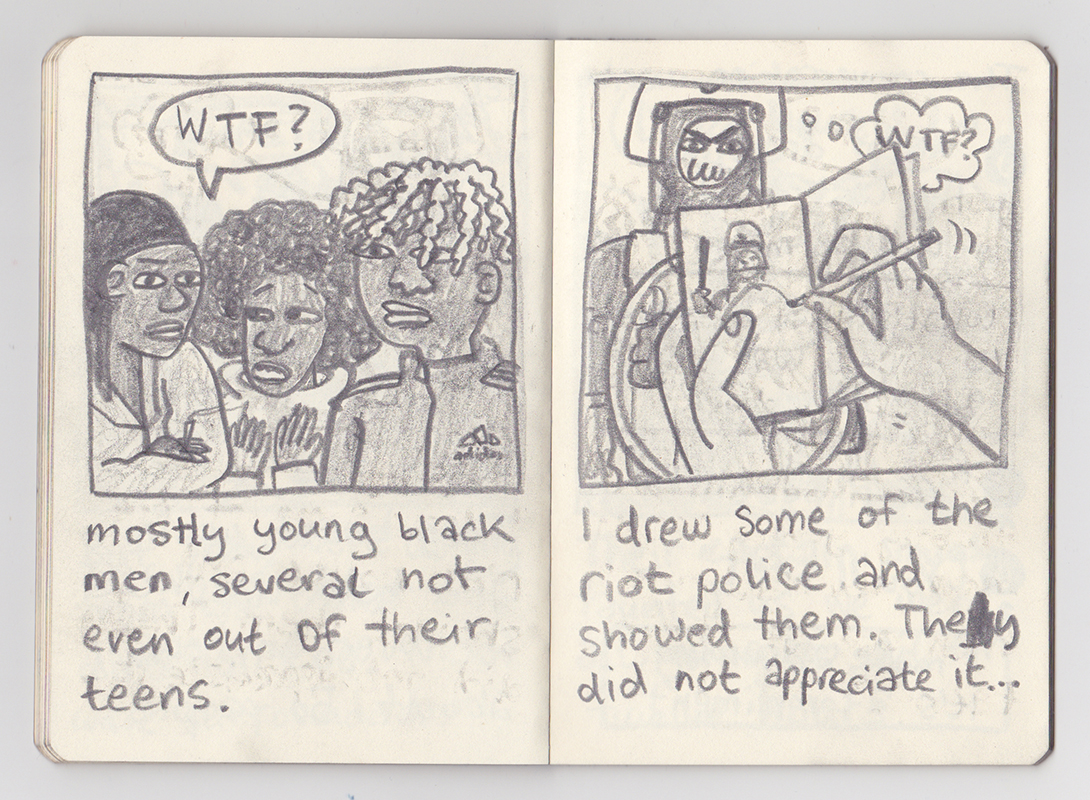 WTF?
adidas
mostly young black
men, several not
even out of their
teens.
WTF?
I drew some of the
riot police and
showed them. They
did not appreciate it...